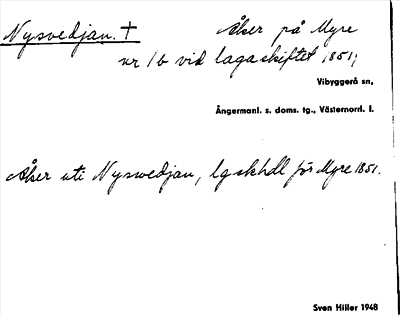 Nysvedjan. † Åker på Myre
nr 1b vid laga skiftet 1851;
Vibyggerå sn,
Ångermanl. s. doms. tg., Västernorrl. l.
Åker uti Nyswedjan, lgskhdl för Myre 1851.
Sven Hiller 1948